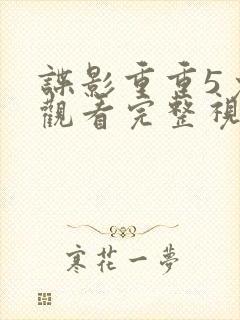 諜影重重5
觀看完整視
寒花一夢